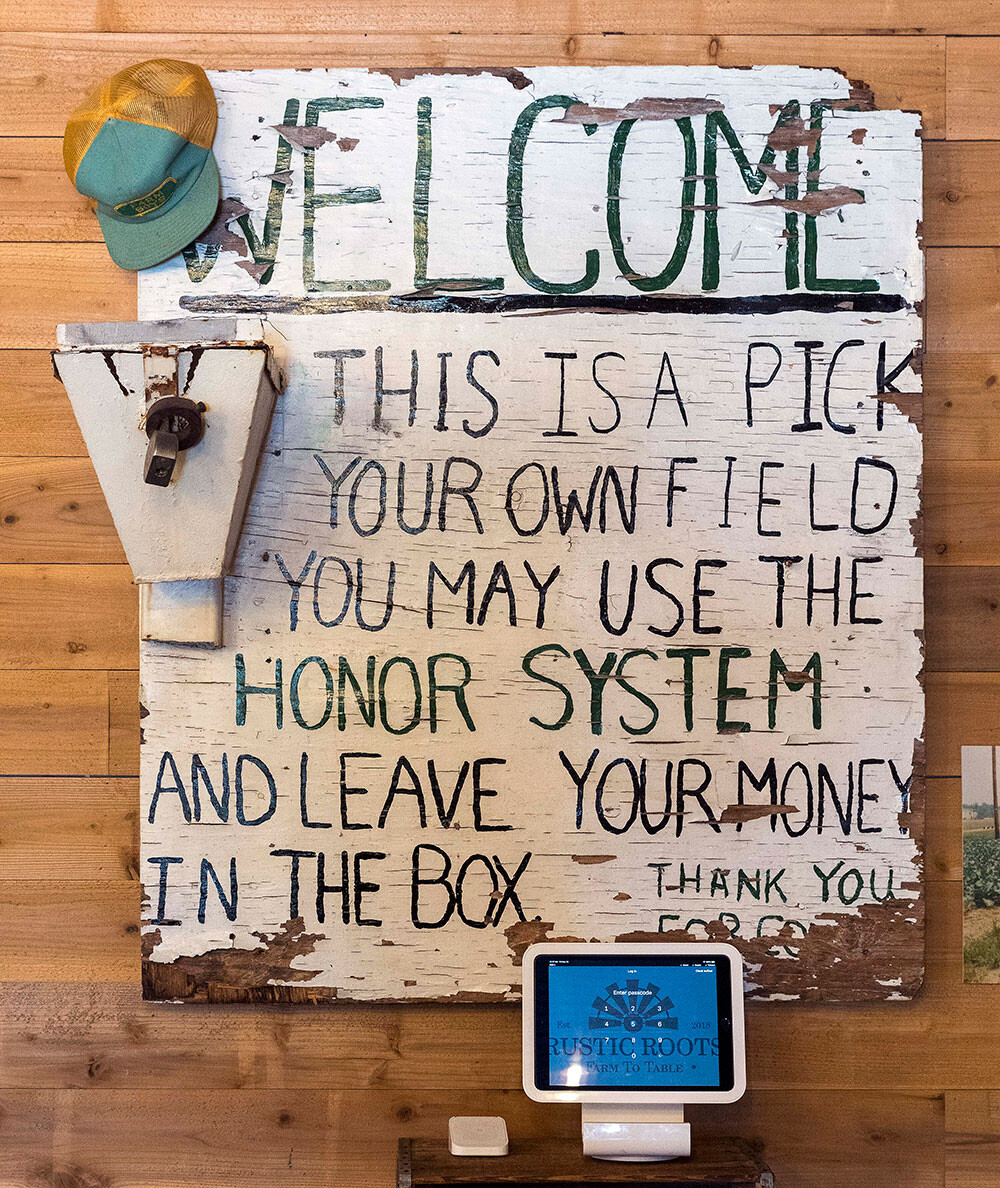 WELCOME
THIS IS A PICK
YOUR OWN FIELD
YOU MAY USE THE
HONOR SYSTEM
AND LEAVE YOUR MONEY
IN THE BOX
THANK YOU
FOR
Log in
Enter passcode
1 2 3
4 5 6
7 8 9
0
Est. 2018
RUSTIC ROOTS
FARM TO TABLE